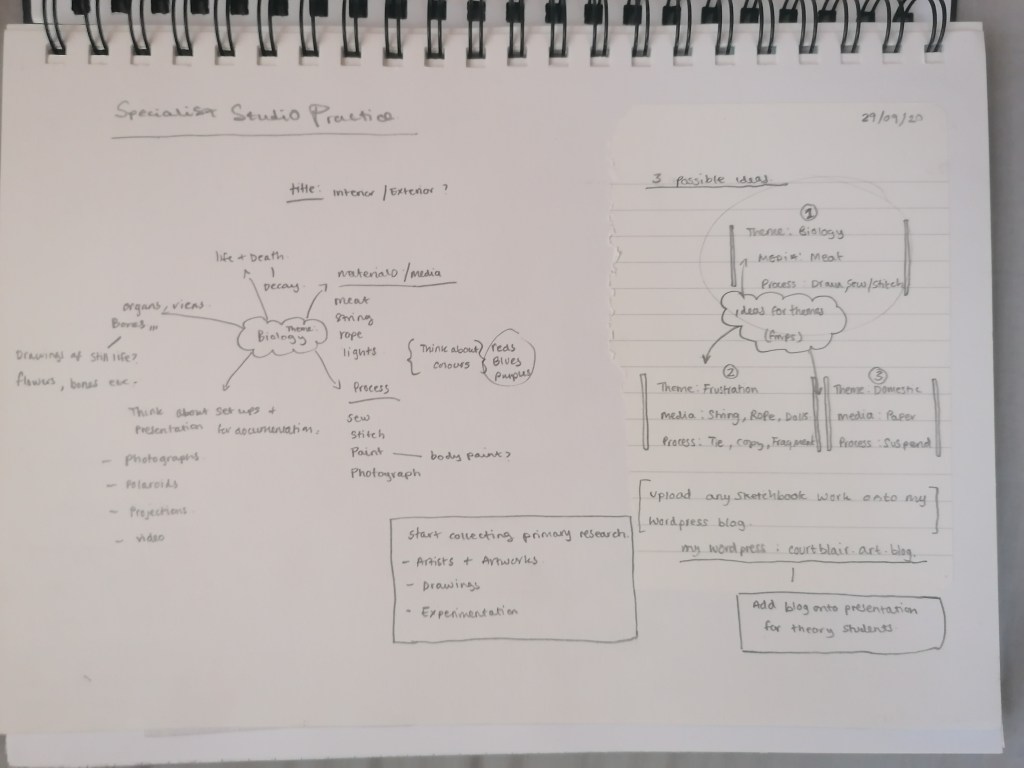 Specialist Studio Practice
29/09/20
title: Interior/Exterior?
life + Death
Decay
organs, viens
Bones
Drawings of still life?
flowers, bones etc.
Theme:
Biology
materials/media
meat
string
rope
lights
Think about
colours
reds
Blues
purples
Process
sew
stitch
Paint — body paint?
Photograph
Think about set ups +
presentation for documentation.
- Photographs
- Polaroids
- Projections
- video
Start collecting primary research
- Artists + Artworks
- Drawings
- Experimentation
3 possible ideas
1
Theme: Biology
Media: Meat
Process: Draw, Sew/Stitch
ideas for themes
2
Theme: Frustration
media: String, Rope, Dolls
Process: Tie, copy, Fragment
3
Theme: Domestic
media: Paper
Process: Suspend
[upload any sketchbook work onto my
wordpress blog]
my wordpress: courtblair.art.blog.
Add blog onto presentation
for theory students